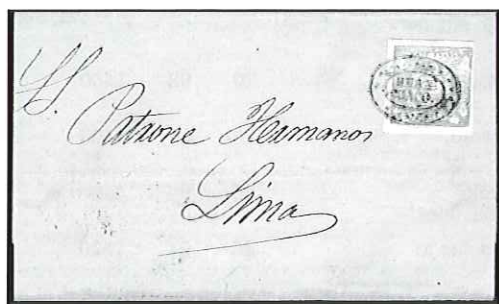 SS.
Patrone Hermanos
Lima